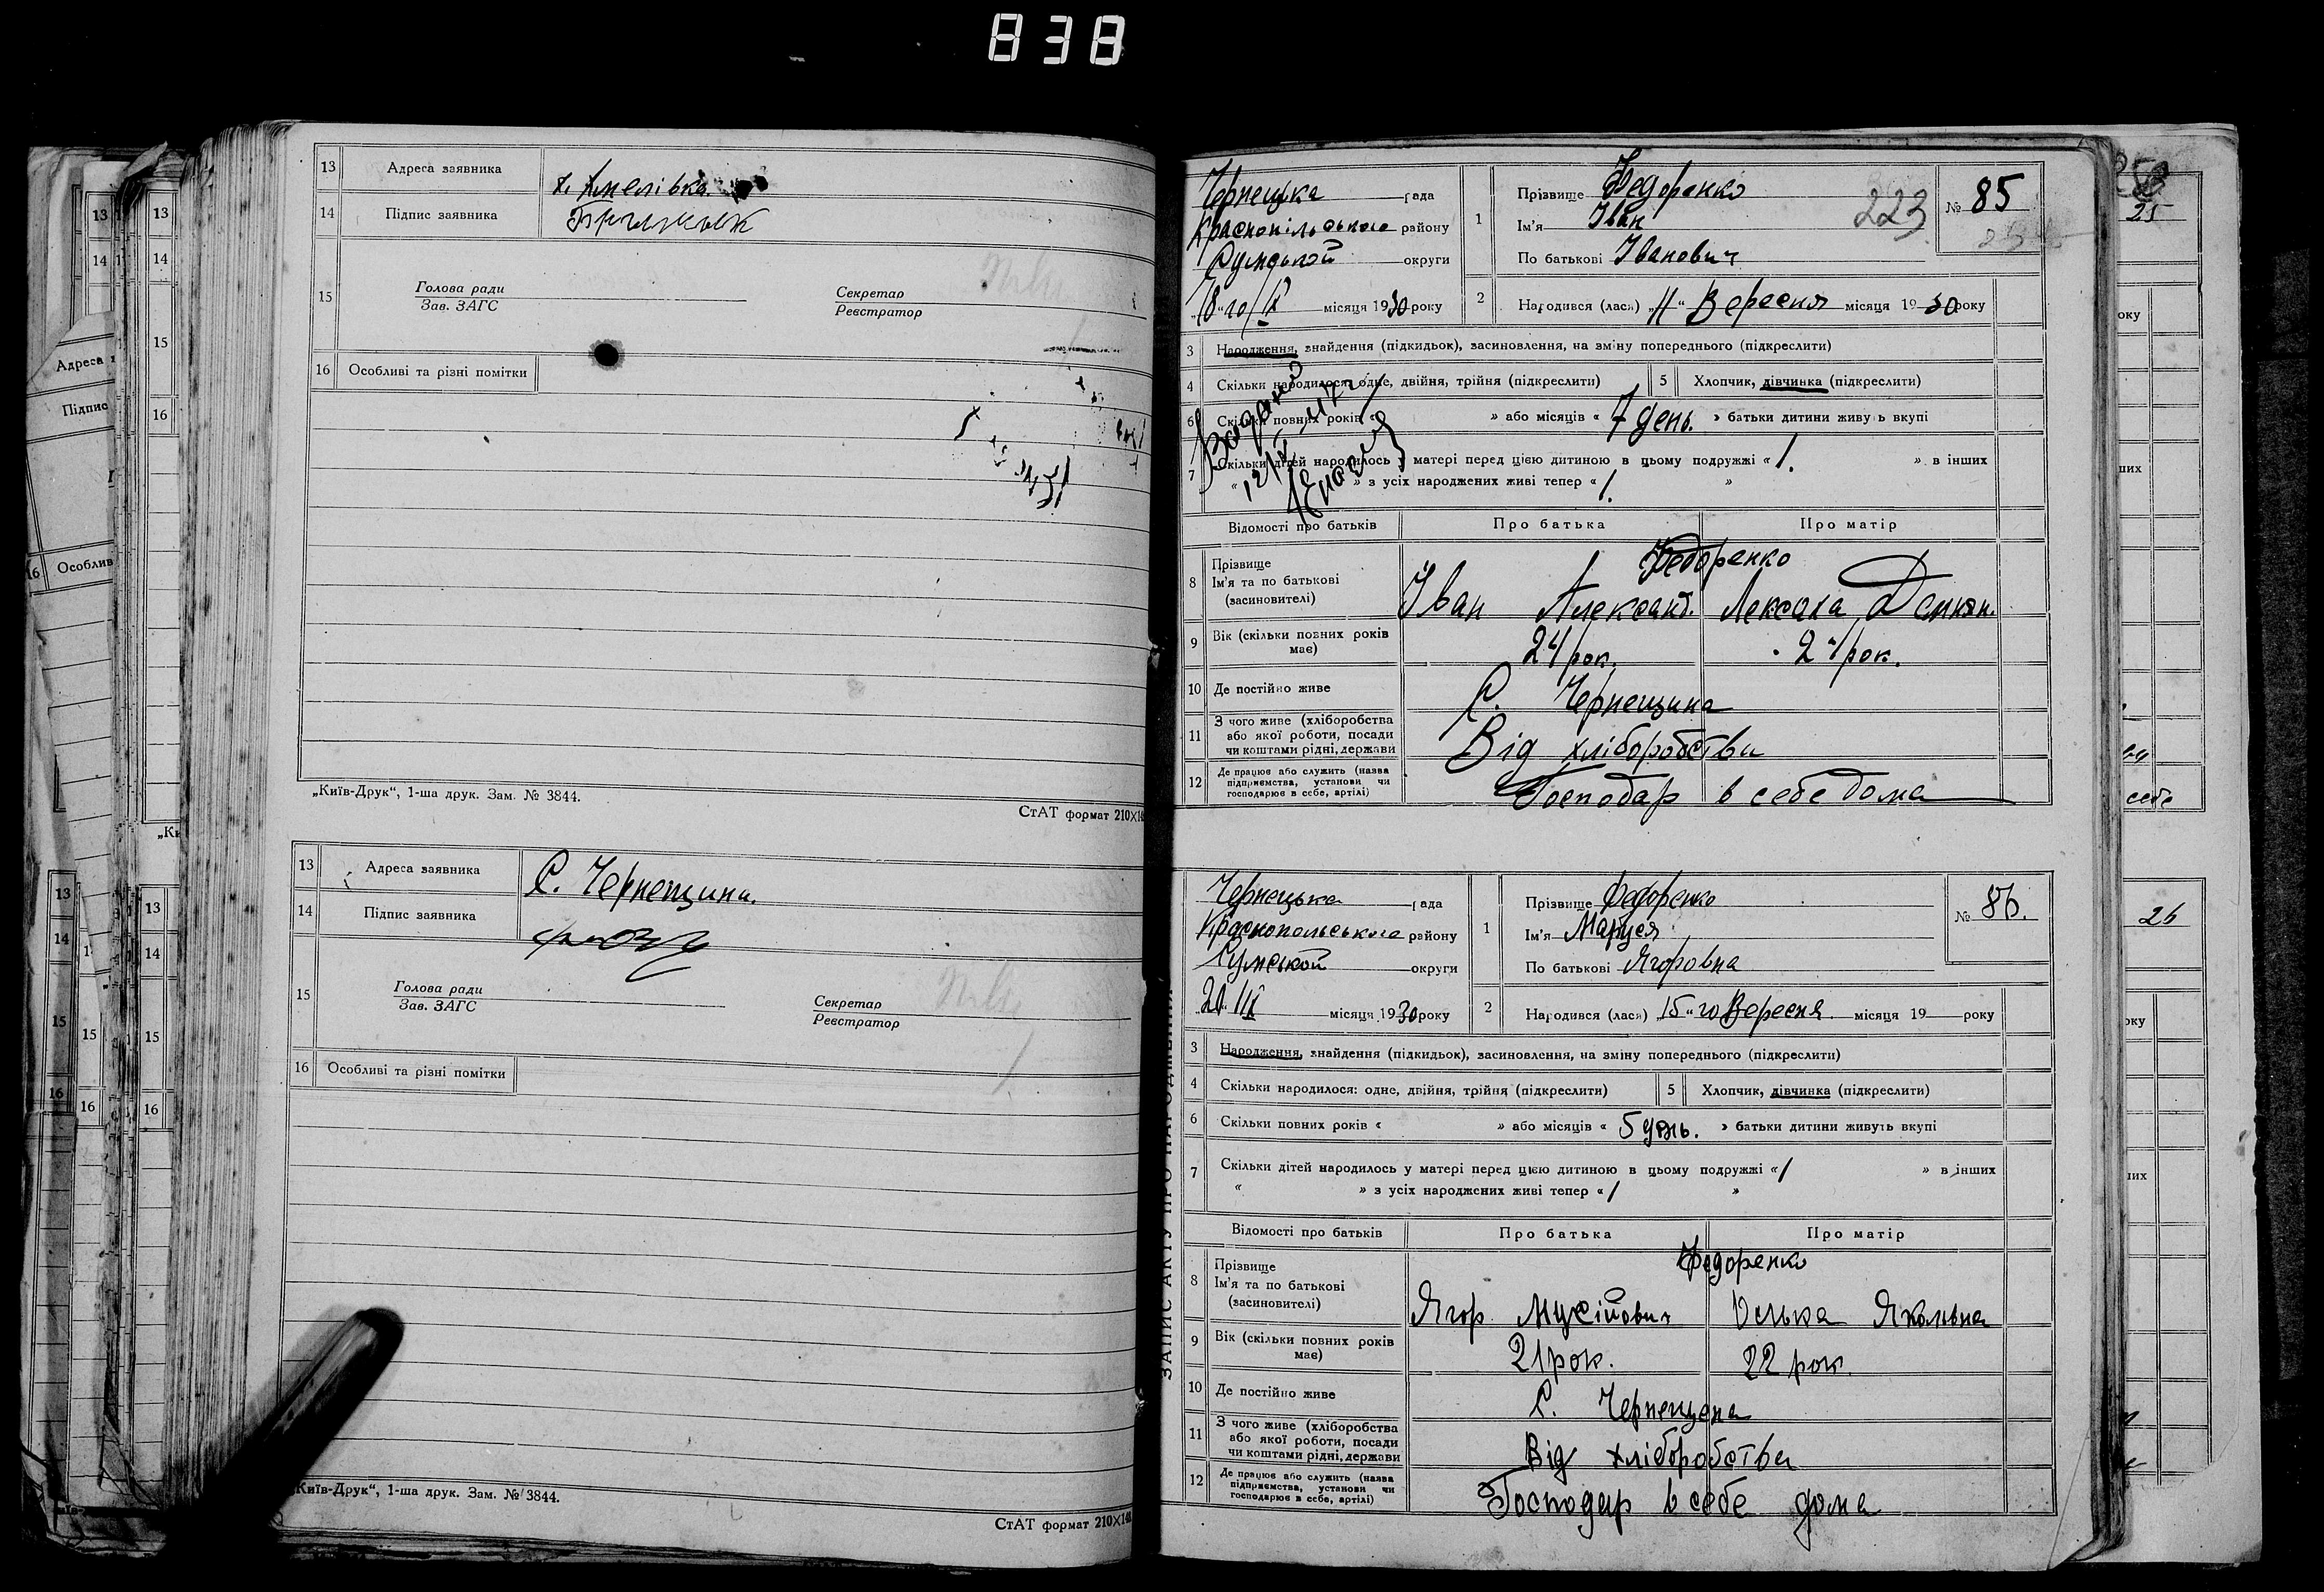 838
13 Адреса заявника х. Хмелівка.
14 Підпис заявника
15 Голова ради
Зав. ЗАГС
Секретар
Реєстратор
16 Особливі та різні помітки
„Київ-Друк“, 1-ша друк. Зам. № 3844.
СтАТ формат 210×14
13 Адреса заявника С. Чернещина.
14 Підпис заявника
15 Голова ради
Зав. ЗАГС
Секретар
Реєстратор
16 Особливі та різні помітки
Київ-Друк“, 1-ша друк. Зам. № 3844.
СтАТ формат 210×148
Чернецька рада
Краснопільського району
Сумської округи
„18“го/ІХ місяця 1930 року
1 Прізвище Федоренко
Ім'я Іван
По батькові Іванович
223
№ 85
2 Народився (лася) „11“ Вересня місяця 1930 року
3 Народження, знайдення (підкидьок), засиновлення, на зміну попереднього (підкреслити)
4 Скільки народилося: одне, двійня, трійня (підкреслити) 5 Хлопчик, дівчинка (підкреслити)
6 Скільки повних років « » або місяців « 7 день. » батьки дитини живуть вкупі
7 Скільки дітей народилось у матері перед цією дитиною в цьому подружжі « 1. » в інших
« » з усіх народжених живі тепер « 1. »
Відомості про батьків Про батька Про матір
8 Прізвище
Ім'я та по батькові
(засиновителі)
Федоренко
Іван Александ. Лександа Демян.
9 Вік (скільки повних років має) 24 рок. 24 рок.
10 Де постійно живе С. Чернещина
11 З чого живе (хліборобства
або якої роботи, посади
чи коштами рідні, держави
Від хліборобства
12 Де працює або служить (назва
підприємства, установи чи
господарює в себе, артілі)
Господар в себе дома
ЗАПИС АКТУ ПРО НАРОДЖЕННЯ
Чернецька рада
Краснопольського району
Сумської округи
„20“ ІХ місяця 1930 року
1 Прізвище Федоренко
Ім'я Маруся
По батькові Ягоровна
№ 86.
2 Народився (лася) „15“го Вересня місяця 19 року
3 Народження, знайдення (підкидьок), засиновлення, на зміну попереднього (підкреслити)
4 Скільки народилося: одне, двійня, трійня (підкреслити) 5 Хлопчик, дівчинка (підкреслити)
6 Скільки повних років « » або місяців « 5 день. » батьки дитини живуть вкупі
7 Скільки дітей народилось у матері перед цією дитиною в цьому подружжі « 1 » в інших
« » з усіх народжених живі тепер « 1 »
Відомості про батьків Про батька Про матір
8 Прізвище
Ім'я та по батькові
(засиновителі)
Федоренко
Ягор Мусійович Яковьвна
9 Вік (скільки повних років має) 21 рок. 22 рок.
10 Де постійно живе С. Чернещена
11 З чого живе (хліборобства
або якої роботи, посади
чи коштами рідні, держави
Від хліборобства
12 Де працює або служить (назва
підприємства, установи чи
господарює в себе, артілі)
Господар в себе дома
25
себе
26